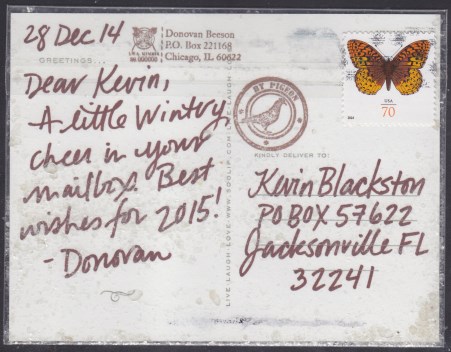 28 Dec 14
Donovan Beeson
P.O. Box 221168
Chicago, IL 60622
GREETINGS...
Dear Kevin,
A little Wintry
cheer in your
mailbox. Best
wishes for 2015!
- Donovan
BY PIGEON
LIVE·LAUGH·LOVE·WWW.SOOLIP.COM·LIVE·LAUGH·LOVE
USA
70
KINDLY DELIVER TO:
Kevin Blackston
PO BOX 57622
Jacksonville FL
32241